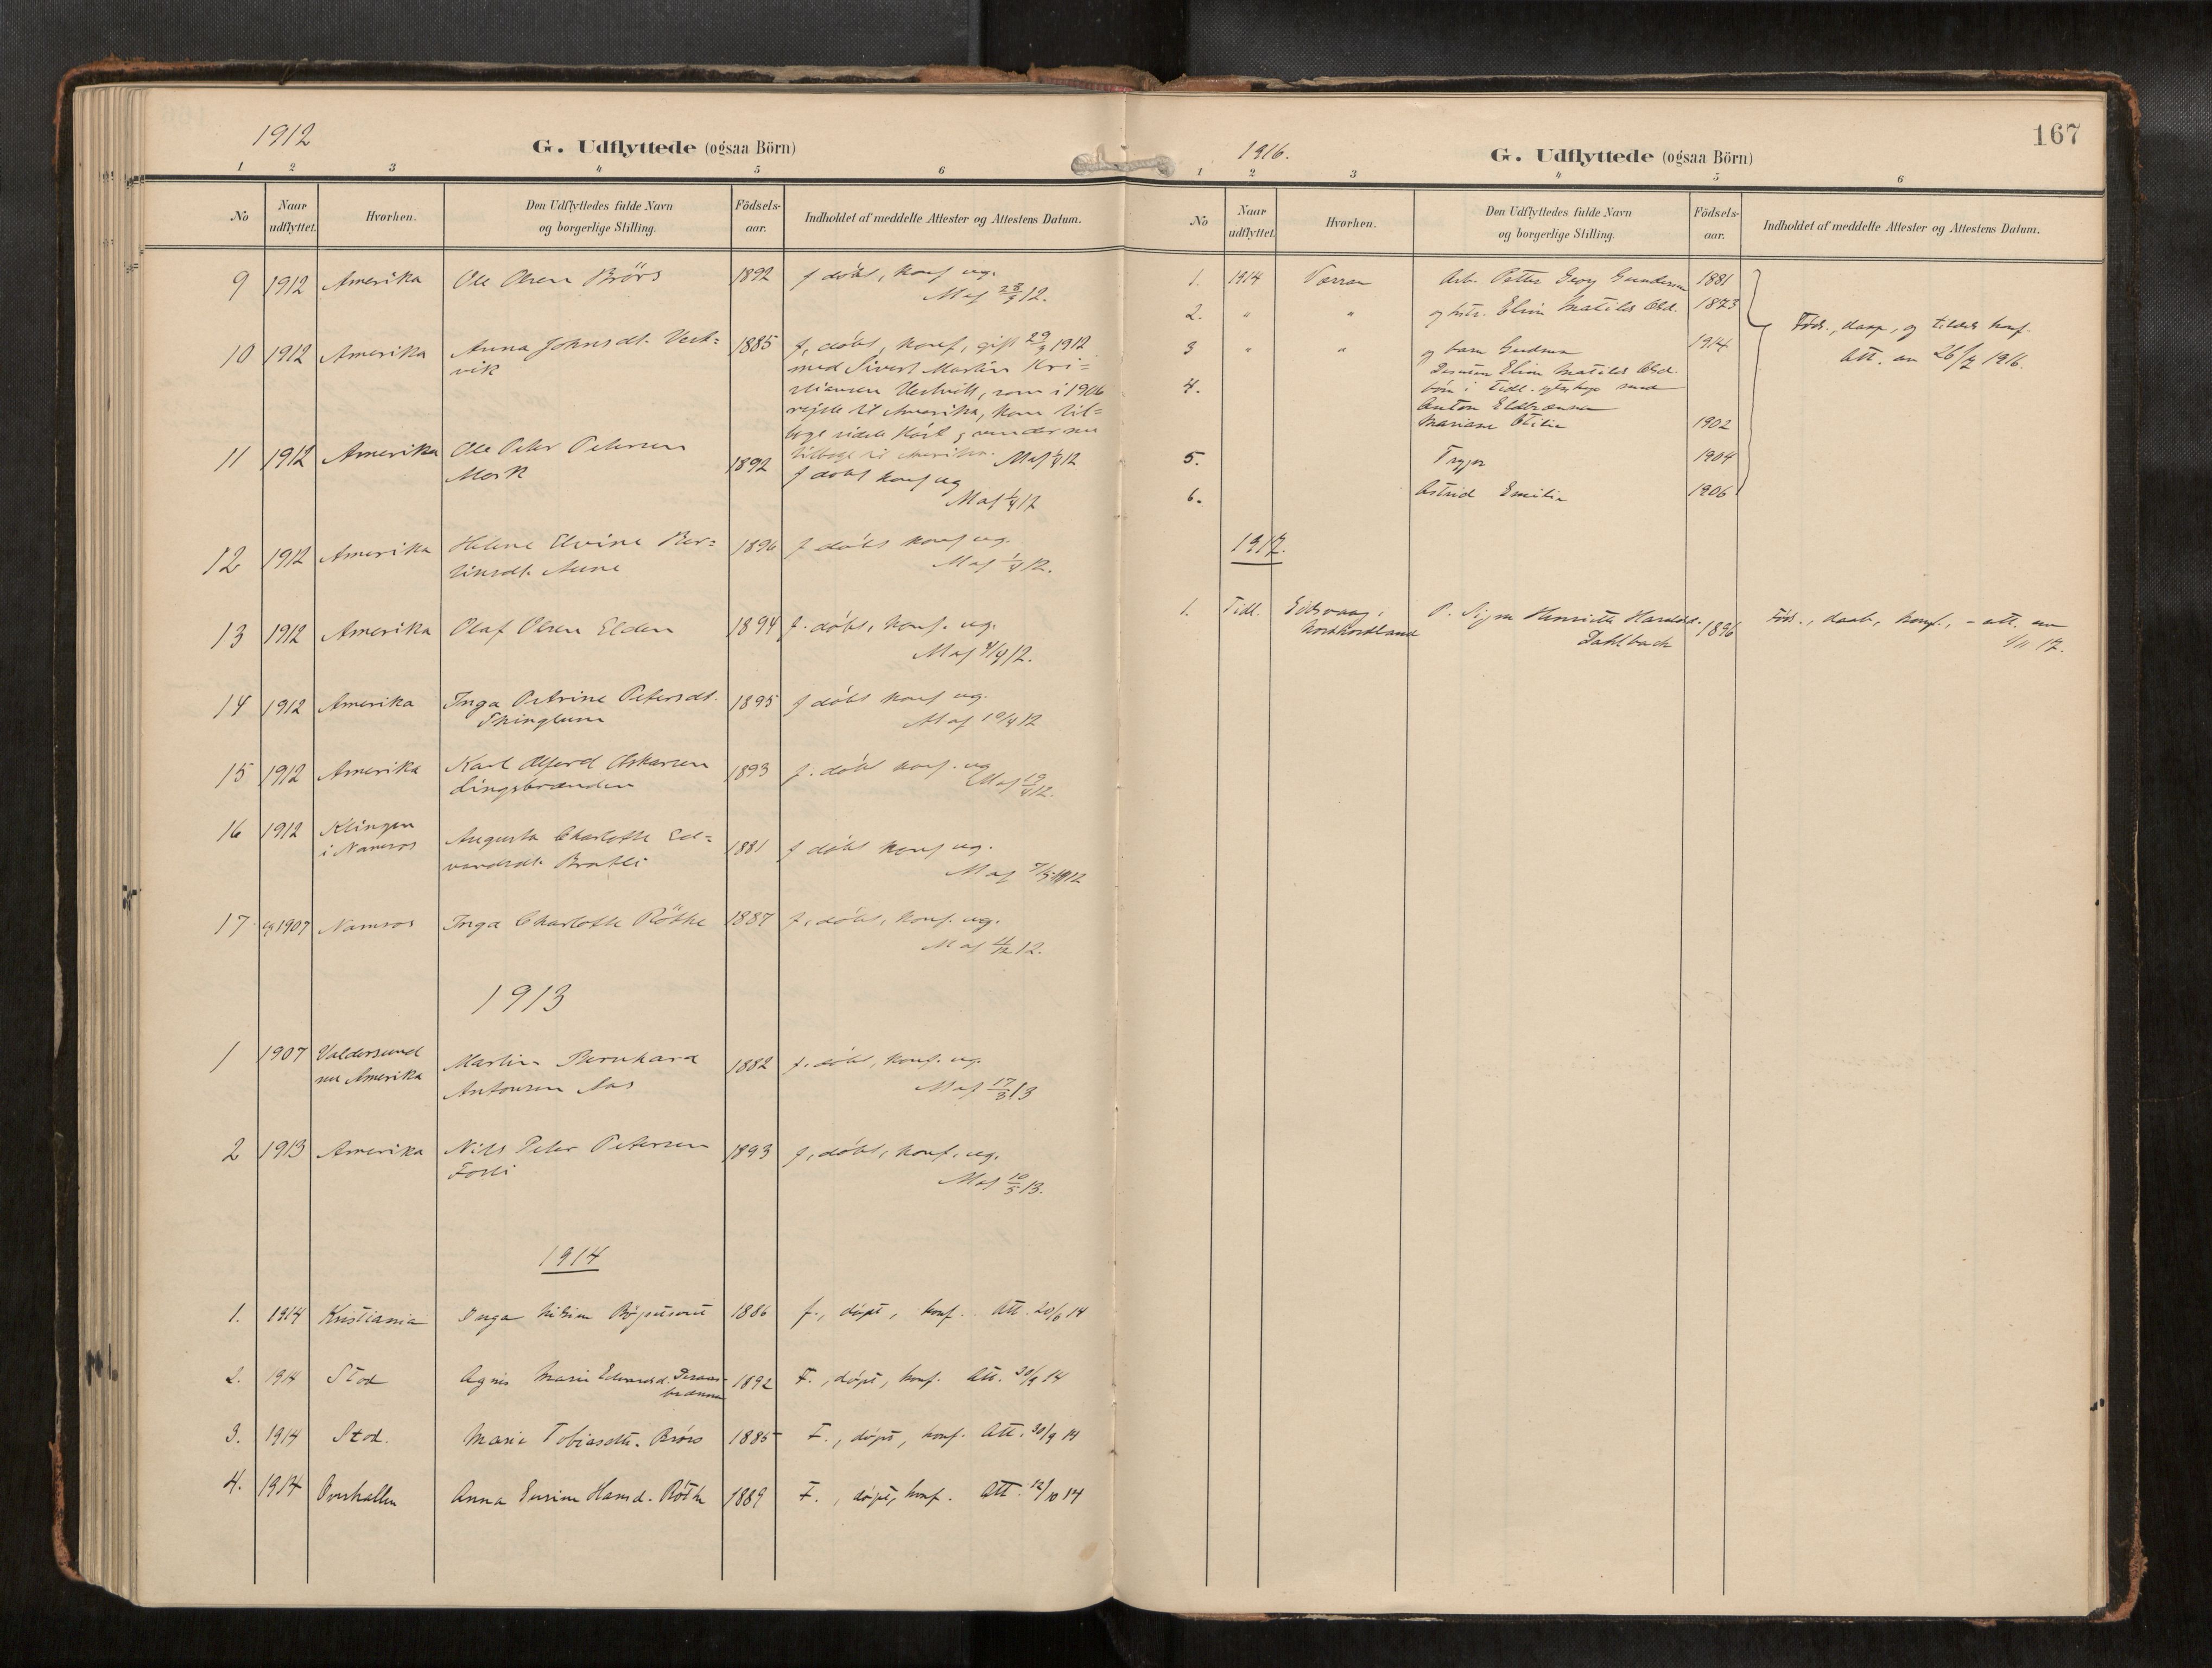 1912
G. Udflyttede (ogsaa Börn)
1 2 3 4 5 6
No
Naar udflyttet.
Hvorhen.
Den Udflyttedes fulde Navn og borgerlige Stilling.
Födsels-aar.
Indholdet af meddelte Attester og Attestens Datum.
9 1912 Amerika Ole Olsen Brörs 1892 f döbt, konf ug.
28/3 12.
10 1912 Amerika Anna Johnsdt. Vest= 1885 f, döbt, konf, gift 29/3 1912
vik med Sivert Martin Kri=
stiansen Vestvik, som i 1906
rejste til Amerika, kom til=
bage sidste Höst & vender nu
tilbage til Amerika. 1/4 12
11 1912 Amerika Ole Peter Petersen 1892 f döbt konf ug
Mork 1/4 12
12 1912 Amerika Helene Elvine Ber= 1896 f döbt konf ug.
tinsdt. Aune 1/4 12.
13 1912 Amerika Olaf Olsen Elden 1894 f. döbt, konf. ug.
4/4 12.
14 1912 Amerika Inga Petrine Petersdt. 1895 f döbt konf ug.
10/4 12
15 1912 Amerika Karl Alfred Oskarsen 1893 f. döbt konf. ug
Lingsbrænden 19/4 12.
16 1912 Klingen 1881 f döbt konf ug.
i Namsos Augusta Charlotte Ed=
vardsdt. Bratli 7/5 1912
17 1907 Namsos Inga Charlotte Röthe 1887 f, döbt, konf. ug.
4/12 12.
1913
1 1907 Valdersund Martin Bernhard 1882 f. döbt, konf. ug.
nu Amerika Antonsen Aas 17/3 13
2 1913 Amerika Nils Peter Petersen 1893 f, döbt, konf. ug.
Fosli 10/5 13.
1914
1. 1914 Kristiania Inga 1886 f., döpt, konf. Att. 20/6 14
2. 1914 Stod Agnes Marie Edvardsd. 1892 F., döpt, konf. Att. 30/9 14
3. 1914 Stod. Marie Tobiasdtr. Brörs 1885 F., döpt, konf. Att. 30/9 14
4. 1914 Anna Hansd. Röthe 1889 F., döpt, konf. Att. 12/10 14
167
1916.
G. Udflyttede (ogsaa Börn)
1 2 3 4 5 6
No
Naar udflyttet.
Hvorhen.
Den Udflyttedes fulde Navn og borgerlige Stilling.
Födsels-aar.
Indholdet af meddelte Attester og Attestens Datum.
1. 1914 Verran Arb. Petter Georg Gundersen 1881
2. " " og hstr. Elise Matilde Olsd. 1873
Föds., daap, og tildels konf.
3 " " og barn Gudrun 1914 Att. an 26/7 1916.
Elise Matilde Olsd.
4. börn i tidl. med
Anton
Mariane Otilie 1902
5. 1904
6. Astrid Emilie 1906
1917.
1. Tidl. Eidsvaag, P. Signe Henriette Haralds. 1896 Föds., daab, konf., - att. an
Nordhordland Dahlback 1/11 17.